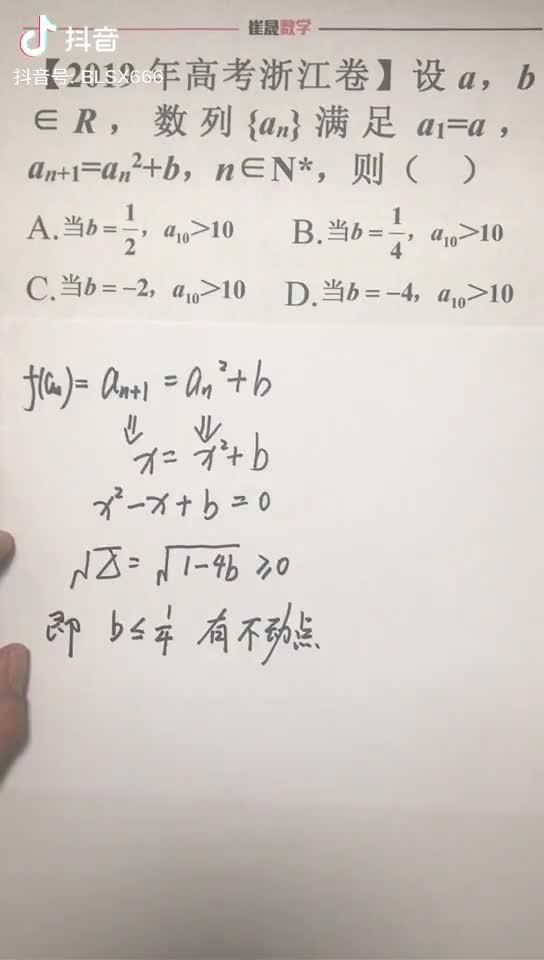 崔晟数学
抖音
抖音号: BLSX666
【2019年高考浙江卷】设a，b
∈R，数列{aₙ}满足a₁=a，
aₙ₊₁=aₙ²+b，n∈N*，则（ ）
A.当b=1/2，a₁₀>10 B.当b=1/4，a₁₀>10
C.当b=-2，a₁₀>10 D.当b=-4，a₁₀>10
f(aₙ)=aₙ₊₁=aₙ²+b
⇓ ⇓
x=x²+b
x²-x+b=0
√Δ=√(1-4b)≥0
即 b≤1/4 有不动点